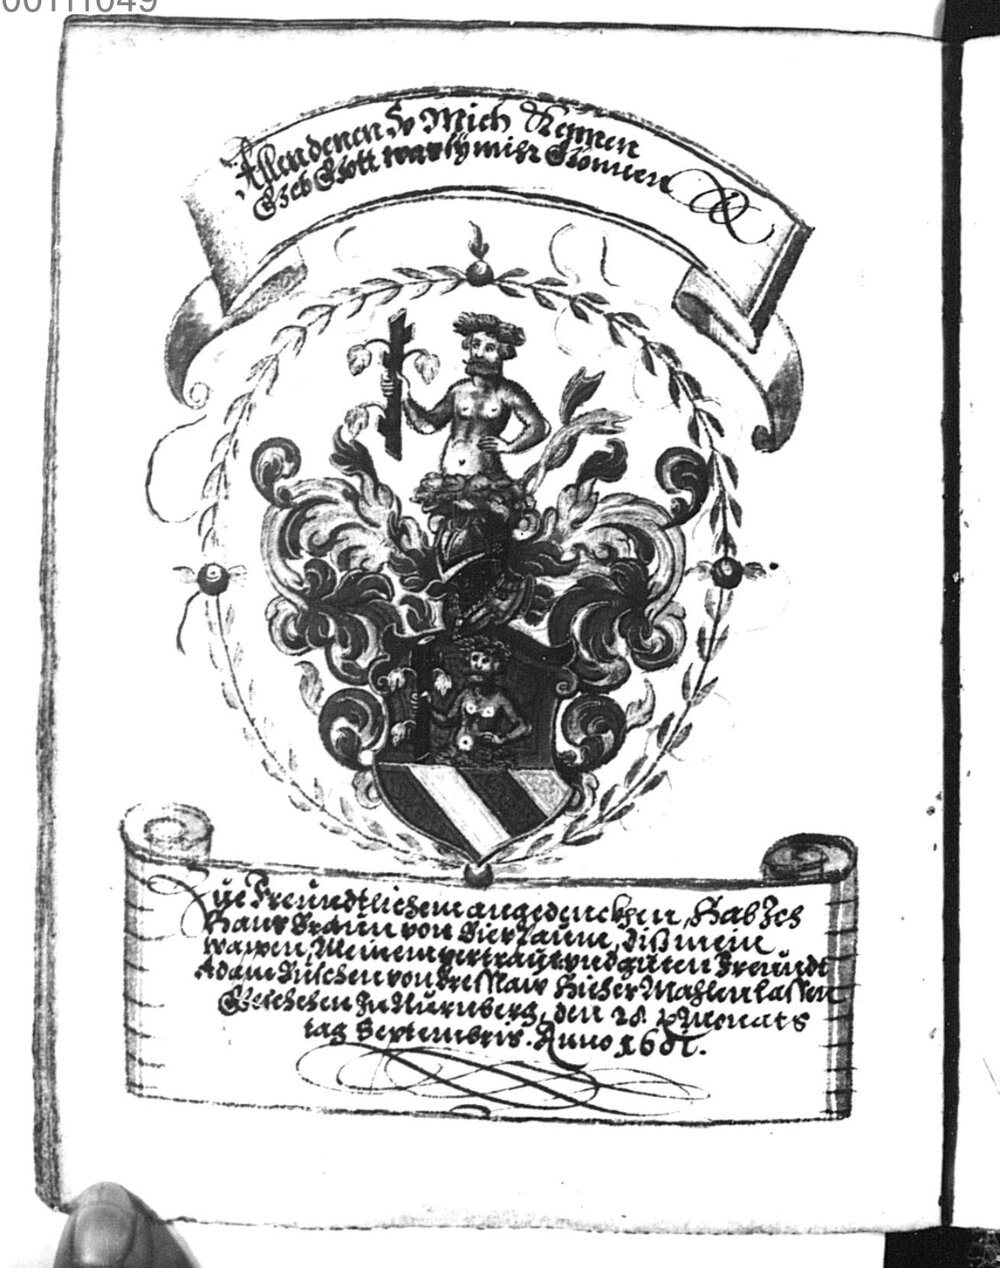 00111049
Allen denen So Mich Kennen
Geb Gott was sÿ mihr Gönnen
Zue Freündtlichem angedenckhen, Hab Ich
Hanns Braun von, diß mein
wappen, Meinem vertrautt vnd guten Freündt
Adam von Presslaw hieher Mahlen lassen
Geschehen Zu Nürnberg, den 28. Monats
tag Septembris. Anno